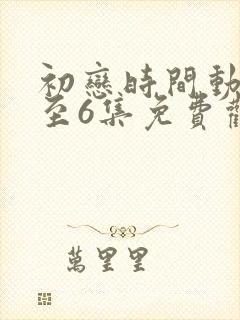 初戀時間動
至6集免費觀
萬里里